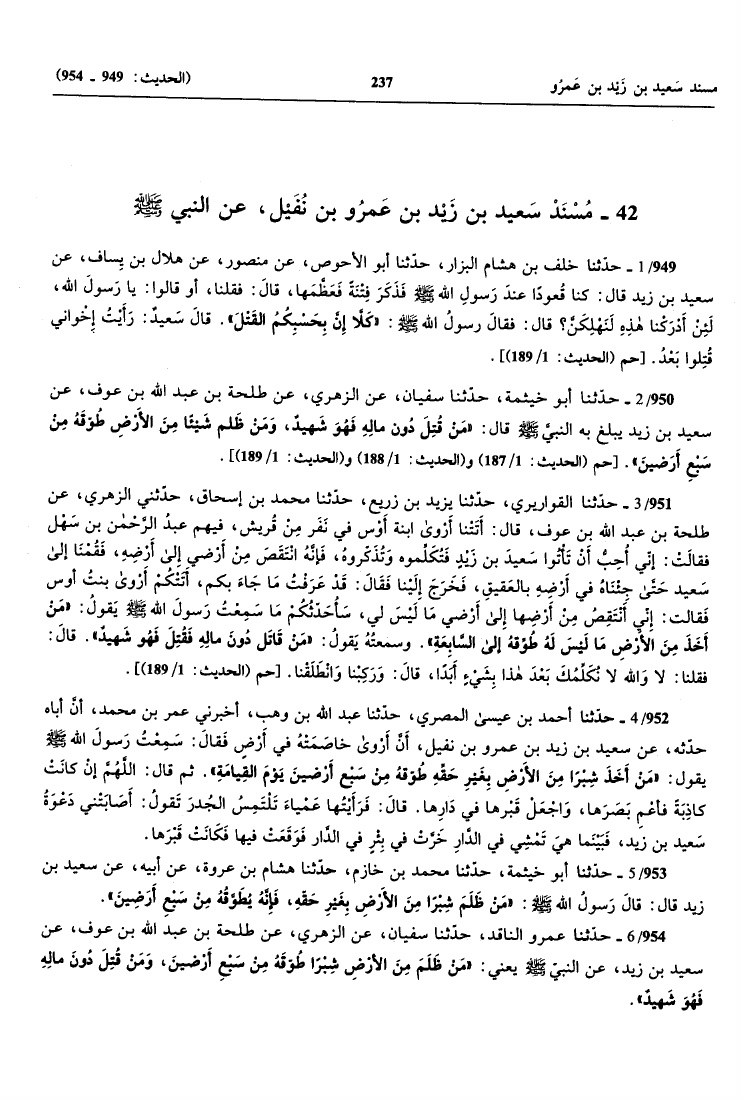 مسند سَعيد بن زَيْد بن عَمرُو 237 (الحديث: 949 ـ 954)
42 ـ مُسْنَدْ سَعيد بن زَيْد بن عَمرُو بن نُفَيْل، عن النبي ﷺ
1/949 ـ حدّثنا خلف بن هشام البزار، حدّثنا أبو الأحوص، عن منصور، عن هلال بن يِساف، عن
سعيد بن زيد قال: كنا قُعودًا عندَ رَسولِ الله ﷺ فَذَكَرَ فِتْنَةً فَعَظَّمَها، قال: فقلنا، أو قالوا: يا رَسولَ الله،
لَئِنْ أَدْرَكنا هٰذِهِ لَنَهْلِكَنَّ؟ قال: فقالَ رسولُ الله ﷺ: «كَلّا إنَّ بِحَسْبِكُمُ القَتْلَ». قالَ سَعيدٌ: رَأيْتُ إخْواني
قُتِلوا بَعْدُ. [حم (الحديث: 1/ 189)].
2/950 ـ حدّثنا أبو خيثمة، حدّثنا سفيان، عن الزهري، عن طلحة بن عبد الله بن عوف، عن
سعيد بن زيد يبلغ به النبيَّ ﷺ قال: «مَنْ قُتِلَ دُون مالِهِ فَهُوَ شَهيدٌ، وَمَنْ ظَلم شَيْئًا مِنَ الأَرْضِ طُوّقَهُ مِنْ
سَبْعِ أَرَضينَ». [حم (الحديث: 1/ 187) و(الحديث: 1/ 188) و(الحديث: 1/ 189)].
3/951 ـ حدّثنا القواريري، حدّثنا يزيد بن زريع، حدّثنا محمد بن إسحاق، حدّثني الزهري، عن
طلحة بن عبد الله بن عوف، قال: أتَتْنا أَرْوىٰ ابنة أَوْس في نَفَر مِنْ قُريش، فيهم عبدُ الرَّحْمٰن بن سَهْل
فقالَتْ: إنّي أُحِبُّ أنْ تَأْتُوا سَعيدَ بن زَيْدٍ فَتُكَلِّموه وَتُذَكّروهُ، فَإِنَّهُ انْتَقَصَ مِنْ أرْضي إلىٰ أرْضِهِ، فَقُمْنَا إلىٰ
سَعيد حَتّىٰ جِئْناهُ في أَرْضِهِ بالعَقيقِ، فَخَرَجَ إلَيْنا فَقَالَ: قَدْ عَرَفْتُ مَا جَاءَ بكم، أتَتْكُمْ أَرْوىٰ بنتُ أوس
فَقالت: إنّي أَنْتَقِصُ مِنْ أرْضِها إلىٰ أرْضي مَا لَيْسَ لي، سَأُحَدّثُكُمْ مَا سَمِعْتُ رَسولَ الله ﷺ يَقولُ: «مَنْ
أخَذَ مِنَ الأَرْضِ مَا لَيْسَ لَهُ طُوّقَهُ إلىٰ السَّابِعَةِ». وسمعتُهُ يَقولُ: «مَنْ قَاتَل دُونَ مالِهِ فَقُتِلَ فَهو شَهيدٌ». قالَ:
فقلنا: لا وَالله لا نُكَلِّمُكَ بَعْدَ هٰذا بِشَيْءٍ أَبَدًا، قالَ: وَرَكِبْنا وَانْطَلَقْنا. [حم (الحديث: 1/ 189)].
4/952 ـ حدّثنا أحمد بن عيسىٰ المصري، حدّثنا عبد الله بن وهب، أخبرني عمر بن محمد، أنَّ أباه
حدّثه، عن سعيد بن زيد بن عمرو بن نفيل، أنَّ أرْوىٰ خاصَمَتْهُ في أَرْضٍ فَقالَ: سَمِعْتُ رَسولَ الله ﷺ
يقول: «مَنْ أَخَذَ شِبْرًا مِنَ الأَرْضِ بِغَيرِ حَقِّهِ طُوّقَهُ مِنْ سَبْعِ أَرَضينَ يَوْمَ القِيامَةِ». ثم قال: اللَّهُمَّ إنْ كانَتْ
كاذِبَةً فأعْمِ بَصَرَها، وَاجْعَلْ قَبْرها في دَارِها. قالَ: فَرَأيْتُها عَمْياءَ تَلْتَمِسُ الجُدرَ تَقولُ: أصَابَتْني دَعْوَةُ
سَعيد بن زيد، فَبَيْنَما هيَ تَمْشِي في الدَّارِ خَرَّتْ في بِئْرٍ في الدَّار فَوَقَعَتْ فيها فَكَانَتْ قَبْرَها.
5/953 ـ حدّثنا أبو خيثمة، حدّثنا محمد بن خازم، حدّثنا هشام بن عروة، عن أبيه، عن سعيد بن
زيد قال: قالَ رَسولُ الله ﷺ: «مَنْ ظَلَمَ شِبْرًا مِنَ الأَرْضِ بِغَيرِ حَقّهِ، فَإِنَّهُ يُطَوَّقُهُ مِنْ سَبْعِ أَرَضِينَ».
6/954 ـ حدّثنا عمرو الناقد، حدّثنا سفيان، عن الزهري، عن طلحة بن عبد الله بن عوف، عن
سعيد بن زيد، عن النبيّ ﷺ يعني: «مَنْ ظَلَمَ مِنَ الأَرْضِ شِبْرًا طُوّقَهُ مِنْ سَبْعِ أَرَضينَ، وَمَنْ قُتِلَ دُونَ مالِهِ
فَهُوَ شَهيدٌ».